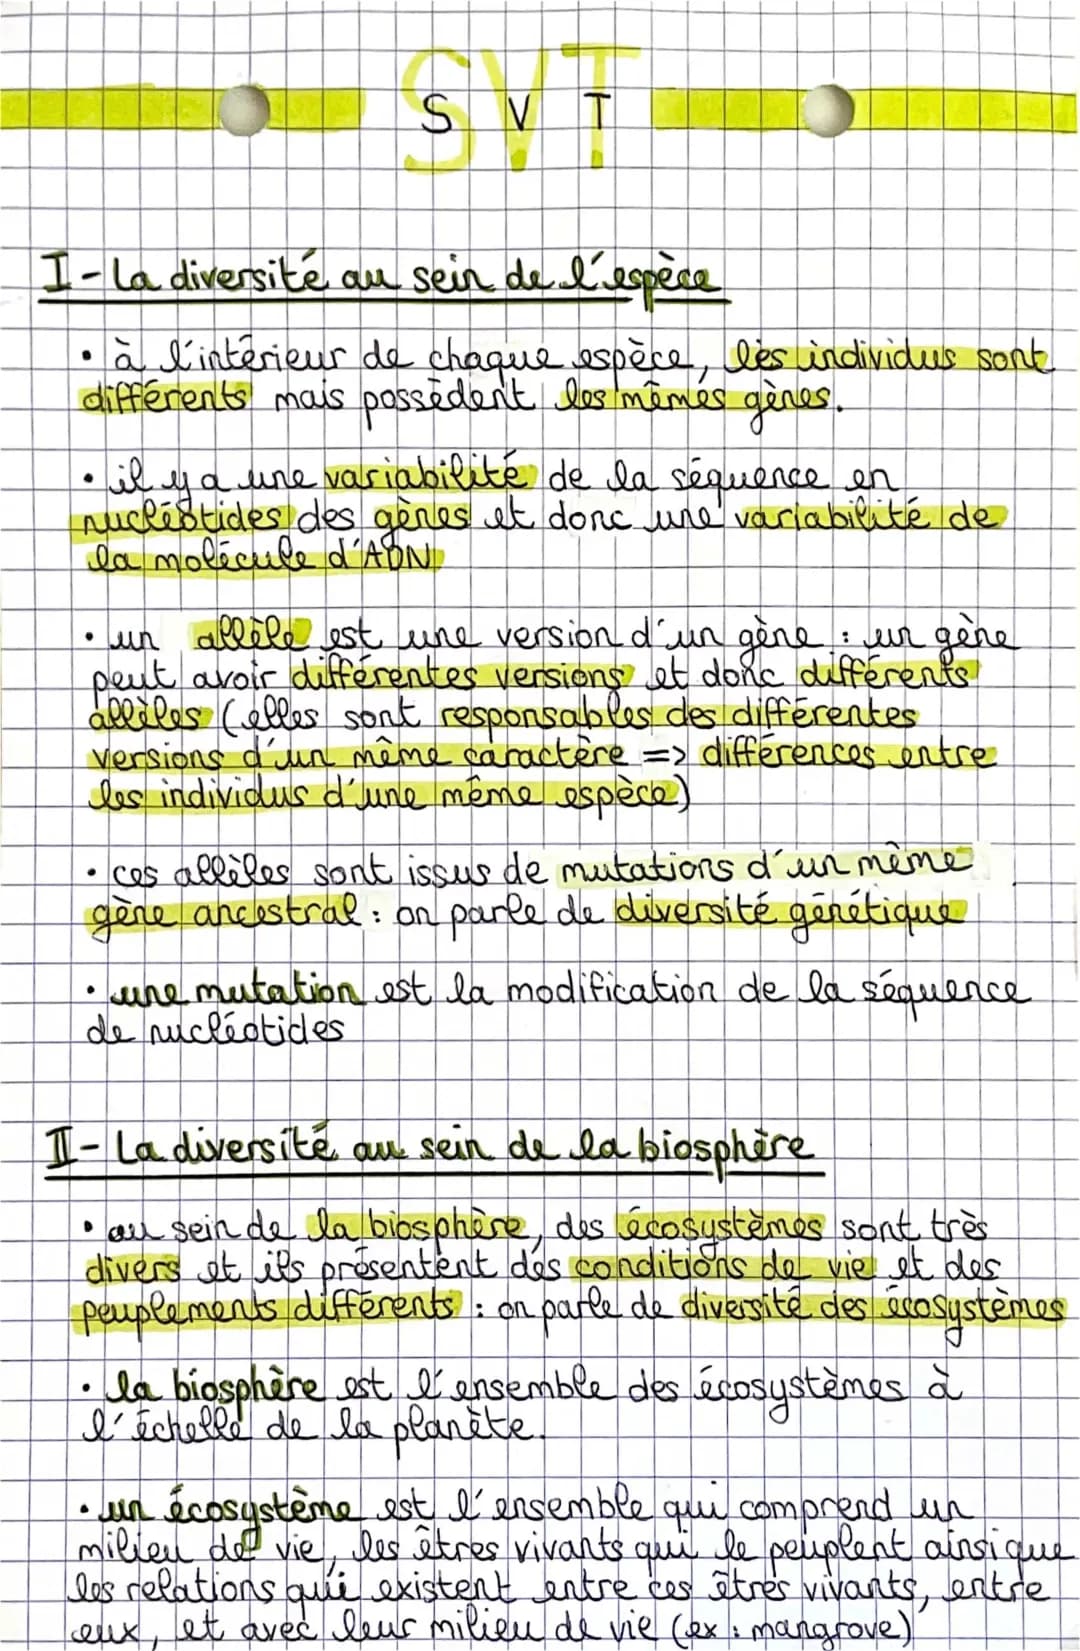 SVT
S V T
I - La diversité au sein de l'espèce
• à l'intérieur de chaque espèce, les individus sont
différents mais possèdent les mêmes gènes.
• il y a une variabilité de la séquence en
nucléotides des gènes et donc une variabilité de
la molécule d'ADN
• un allèle est une version d'un gène : un gène
peut avoir différentes versions et donc différents
allèles (elles sont responsables des différentes
versions d'un même caractère => différences entre
les individus d'une même espèce)
• ces allèles sont issus de mutations d'un même
gène ancestral : on parle de diversité génétique
• une mutation est la modification de la séquence
de nucléotides
II - La diversité au sein de la biosphère
• au sein de la biosphère, des écosystèmes sont très
divers et ils présentent des conditions de vie et des
peuplements différents : on parle de diversité des écosystèmes
• la biosphère est l'ensemble des écosystèmes à
l'échelle de la planète.
• un écosystème est l'ensemble qui comprend un
milieu de vie, les êtres vivants qui le peuplent ainsi que
les relations qui existent entre ces êtres vivants, entre
eux, et avec leur milieu de vie (ex : mangrove)